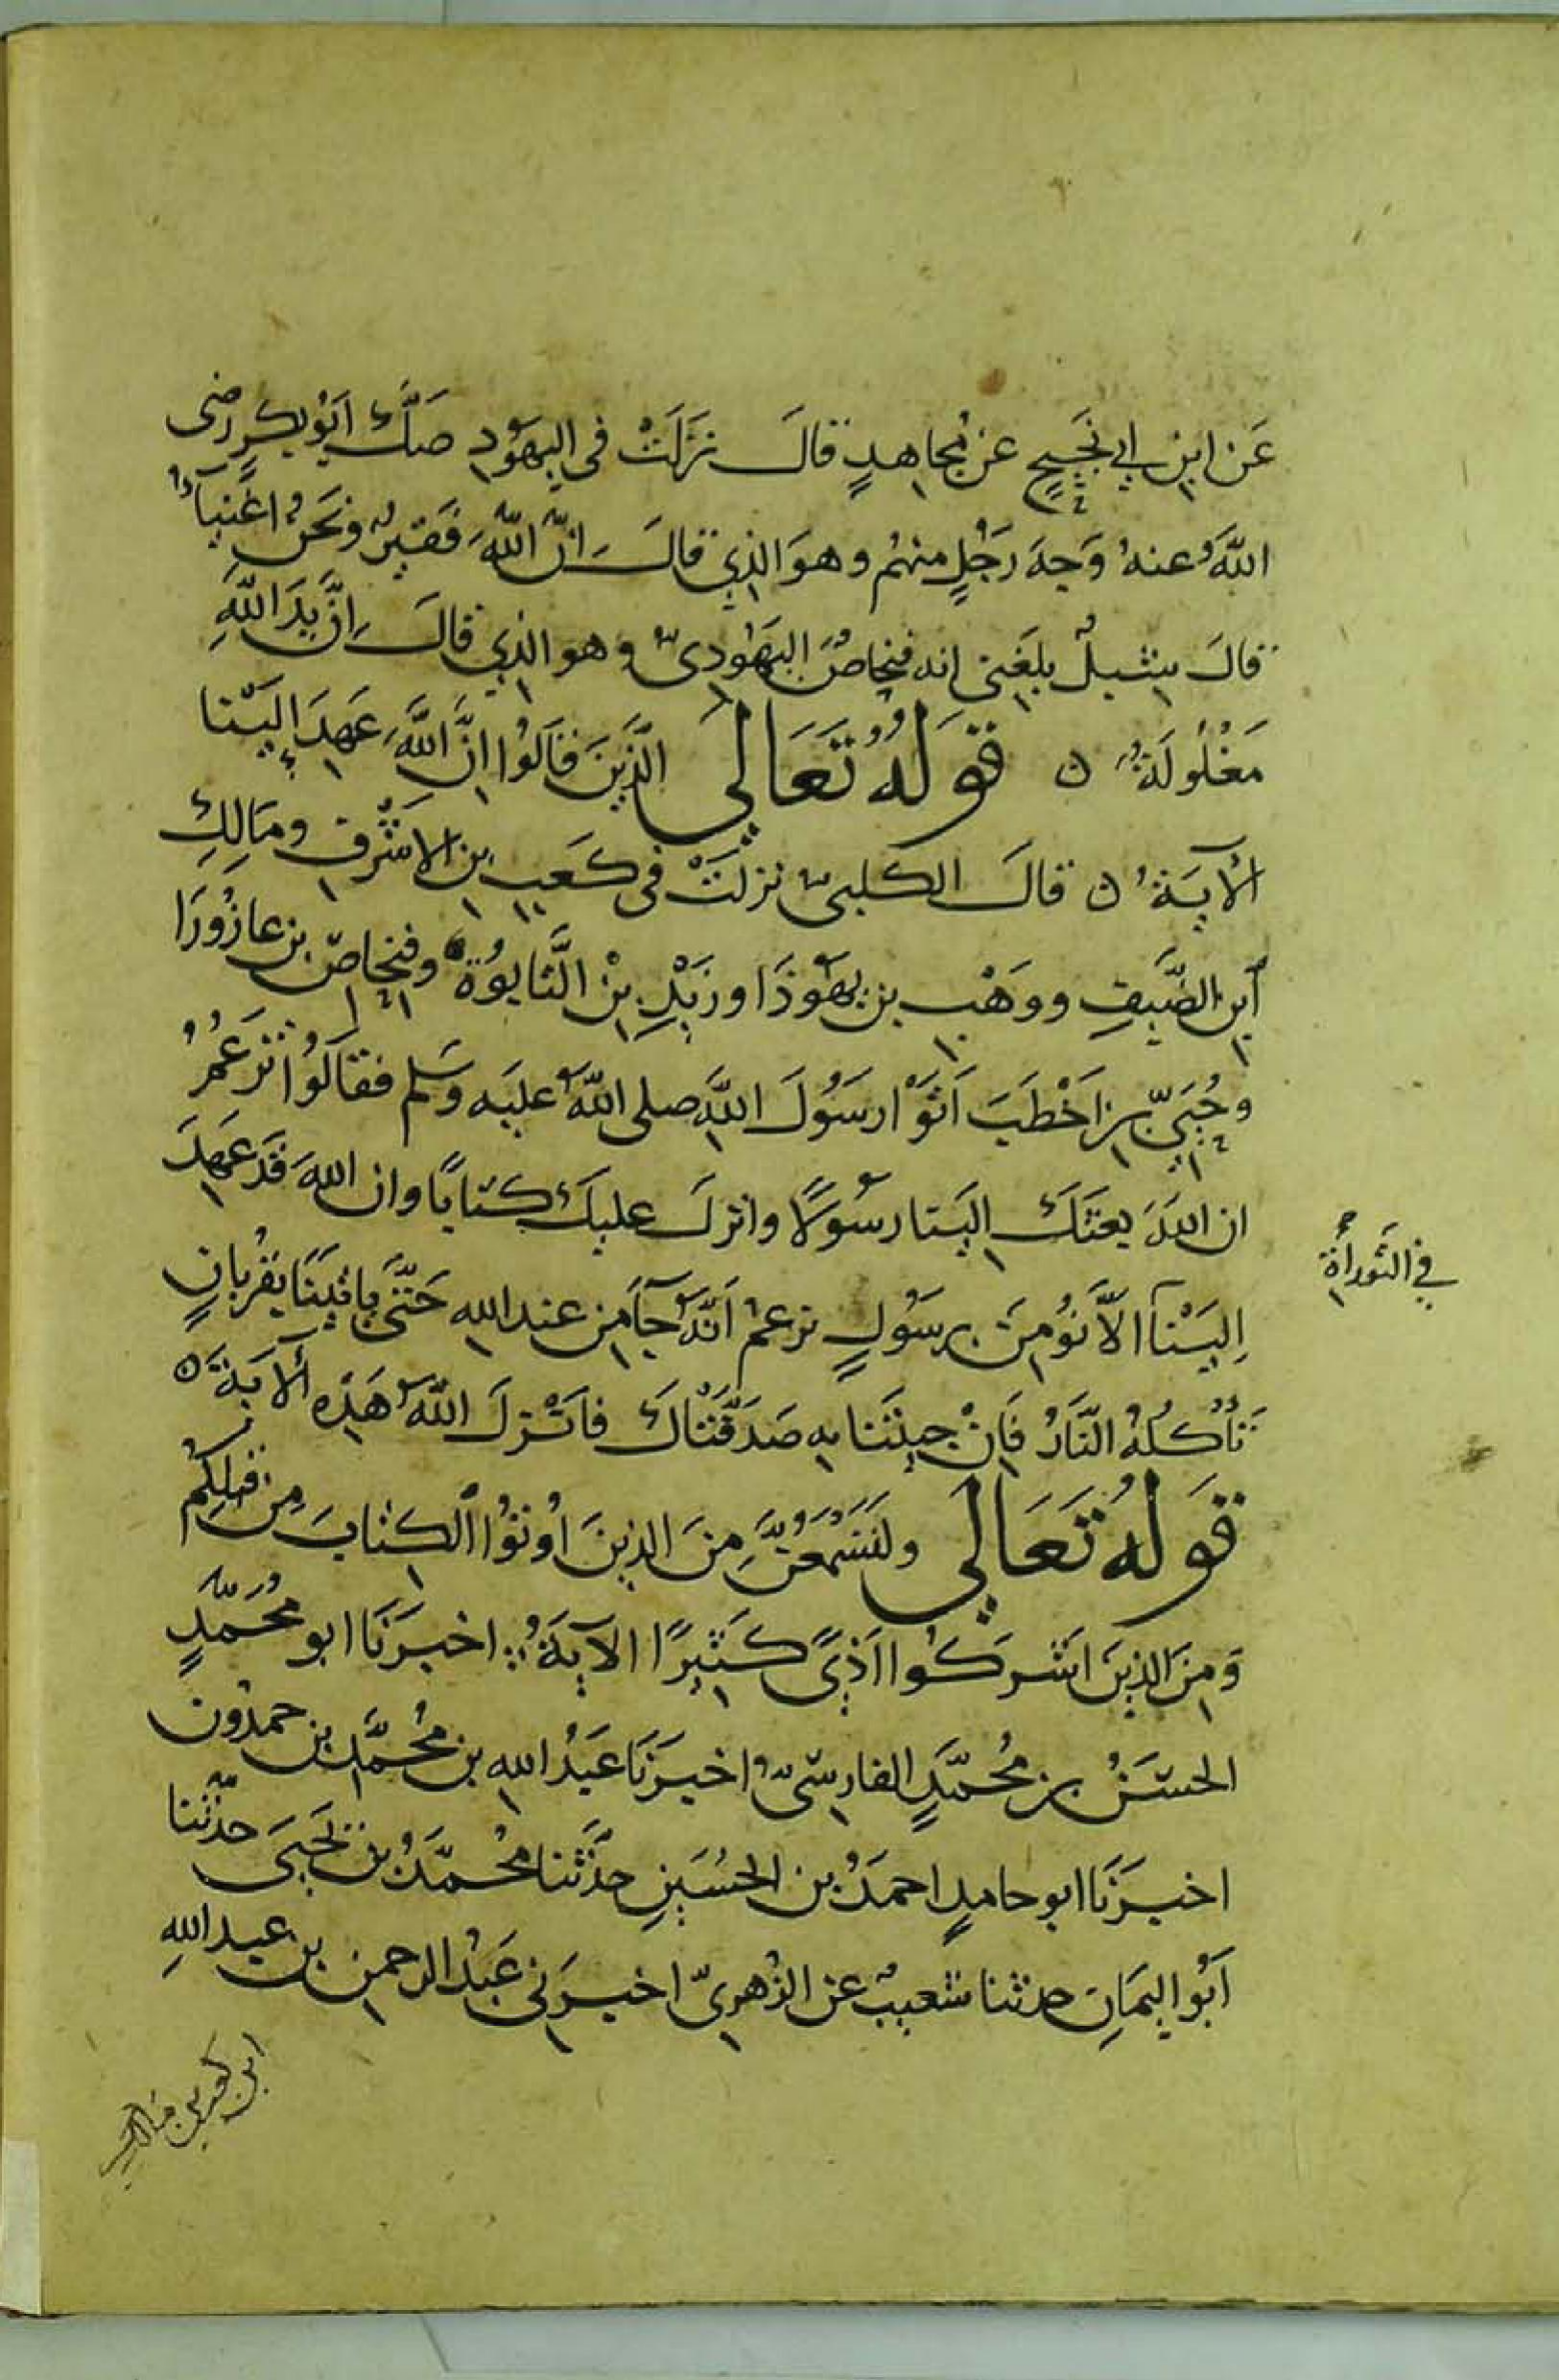 عَن ابنِ ابي نَجِيحٍ عن مُجاهِدٍ قالَ نزَلَتْ في اليهَودِ صَكَّ ابُو بكرٍ رضى
اللّهُ عنهُ وَجهَ رَجُلٍ منهُم وهوَ الذِي قالَ انّ اللّهَ فَقيرٌ ونَحنُ اغنِيَآءُ
قالَ شِبلٌ بلغَنى انه فِنحاصُ اليَهُودىّ وهو الذِي قالَ اِنَّ يَدَ اللّهِ
مَغْلُولَةٌ ن قَولهُ تَعَالي الّذِينَ قَالُوا اِنَّ اللَّهَ عَهِدَ اِلَيْنا
الآيَةُ ن قالَ الكلبىّ نزلَتْ في كَعبِ بن الاشرَفِ ومَالِكِ
اَبنِ الضَّيفِ ووَهْبِ بن يهَوذَا وزَيْدِ بِنْ التَّابُوةِ وفِنحاصّ بن عازُورَا
وحُيَيّ بن اَخْطَبَ اَتَوْا رسَوُلَ اللَّهِ صلى اللّهُ عليَه وسَلم فقالَوُا تَزعُمُ
ان اللهَ بعثَكَ الَينا رسَوُلًا وانزلَ عليكَ كتابًا وان اللهَ قَد عَهِدَ
اِلَيْنآ الاَّ نُؤمِنَ برسَوُلٍ نزعمُ اَنَّهُ جآَ مِن عند اللهِ حَتّىَ ياتِيَنَا بقُربانٍ
في التَّوراةِ
تَأكُلهُ النّارُ فَاِنْ جِيتَنَا بِه صَدَقَّنَاكَ فاَنْزلَ اللّهُ هَذِه الآيَةَ ن
قَولهُ تَعَالي ولتَسَمعُنَّ مِنَ الذِينَ اوُتوُا الكتابَ مِن قبلِكُم
وَمِنَ الذينَ اشَركَوُا اَذىً كَثيرًا الآيَةُ اخبرَنَا ابو مُحَمّدٍ
الحسَنُ بن مُحمّدٍ الفارسِىّ اخبرَنَا عَبدُ اللهِ بن مُحمَّدِ بن حمدُون
اخبرَنَا ابو حامدٍ احمَدُ بن الحُسَينِ حدَّثنا مُحمّدُ بن يَحيىَ حدّثنا
اَبُو اليَمَانِ حدثنا شعيبٌ عن الزُهرىّ اخبرَنى عَبدُ الرحمنِ بن عبد اللهِ
ابن كعب بن مالك